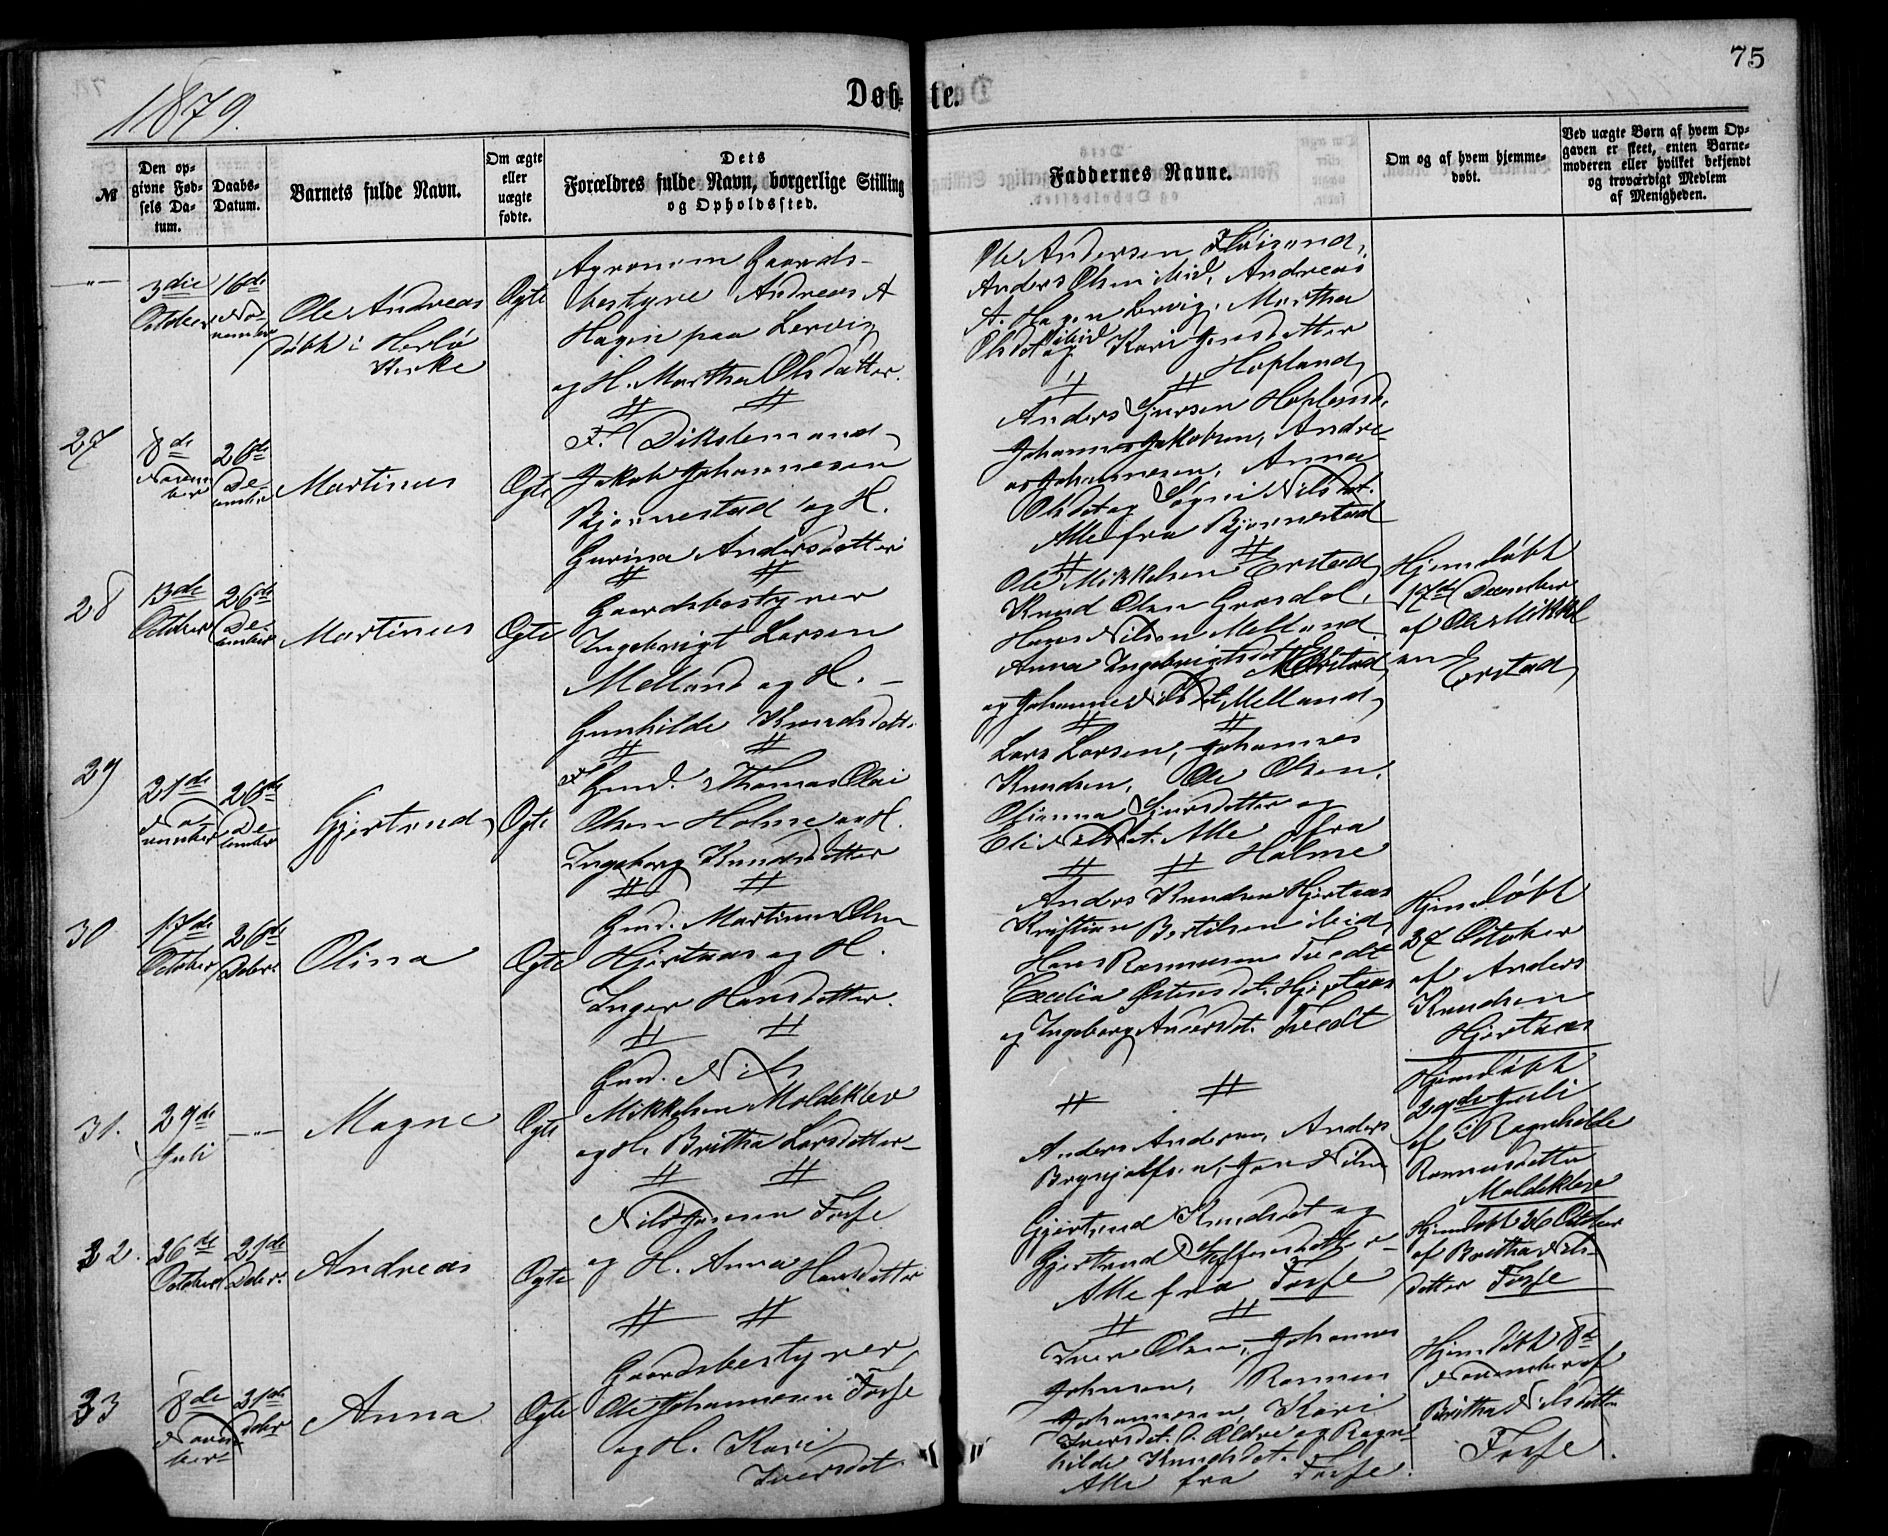 75
1879.
Døbte.
№
Den opgivne Fødsels Datum.
Daabs-Datum.
Barnets fulde Navn.
Om ægte eller uægte fødte.
Dets Forældres fulde Navn, borgerlige Stilling og Opholdssted.
Faddernes Navne.
Om og af hvem hjemmedøbt.
Ved uægte Børn af hvem Opgaven er skeet, enten Barnemoderen eller hvilket bekjendt og troværdigt Medlem af Menigheden.
—"—
3die October
16de November
Ole Andreas
døbt i Herlø Kirke
Ægte
Agronom Gaards-
bestyre Andreas A
Hagen paa Lervig
og H. Martha Olsdatter.
Ole Andersen
Anders Olsen ibid, Andreas
A. Hagen Lervig, Martha
Olsdt ibid og Kari Jensdatter
Hopland
27
8de November
26de December
Martinus
Ægte
F.
Jakob Johannesen
Bjørnestad og H.
Gurina Andersdatter
Anders Sjursen Hopland,
Johannes Jakobsen, Andre-
as Johannesen, Anna
Olsdt og Søgni Nilsdt.
Alle fra Bjørnestad
28
13de October
26de December
Martinus
Ægte
Gaardsbestyrer
Ingebrigt Larsen
Melland og H. —
Gunhilde Knudsdatt.
Ole Mikkelsen Erstad
Knud Olsen
Hans Nilsen Melland
Anna Ingebrigtsdt
og Johanne Nilsdt Melland
Hjemdøbt
17de December
af Ole Mikkel
sen
Erstad
29
21de November
26de December
Gjertrud
Ægte
Gmd. Thomas Olai
Olsen Holme og H.
Ingeborg Knudsdatter
Lars Larsen, Johannes
Knudsen, Ole Olsen,
Olianna Sjursdatter og
Eli Nilsdt. Alle fra
Holme
30
17de October
26de Dcbr.
Olina
Ægte
Gmd. Martinus Olsen
Hjertaas og H.
Inger Hansdatter.
Anders Knudsen Hjertaas
Kristian Bertilsen ibid,
Hans Rasmussen Tvedt
Cecelia Hjertaas
og Ingeborg Andersdt. Tvedt
Hjemdøbt
27 October
af Anders
Knudsen
Hjertaas
31.
29de Juli
—"—
Magne
Ægte
Gmd. Nils
Mikkelsen Moldeklev
og H. Britha Larsdatter
Hjemdøbt
29de Juli
af Ragnhilde
Rasmusdatter
Moldeklev
32.
26de October
21de Dcbr.
Andreas
Ægte
Nils Jonsen Fosse
og H. Anna Hansdatter
Anders Andersen, Anders
Brynjolfsen, Jon Nilsen
Gjertrud Knudsdt og
Gjertrud Steffensdatter
Alle fra Fosse
Hjemdøbt 26 October
af Britha Nils-
datter Fosse
33
8de November
31de Dcbr
Anna
Ægte
Gaardsbestyrer
Ole Johannesen Fosse
og H. Kari
Iversdt
Iver Olsen, Johannes
Johnsen, Rasmus
Johannesen, Kari
Iversdt. d. Ældre og Ragn-
hilde Knudsdt.
Alle fra Fosse.
Hjemdøbt 8de
November af
Britha Nilsdatter
Fosse.